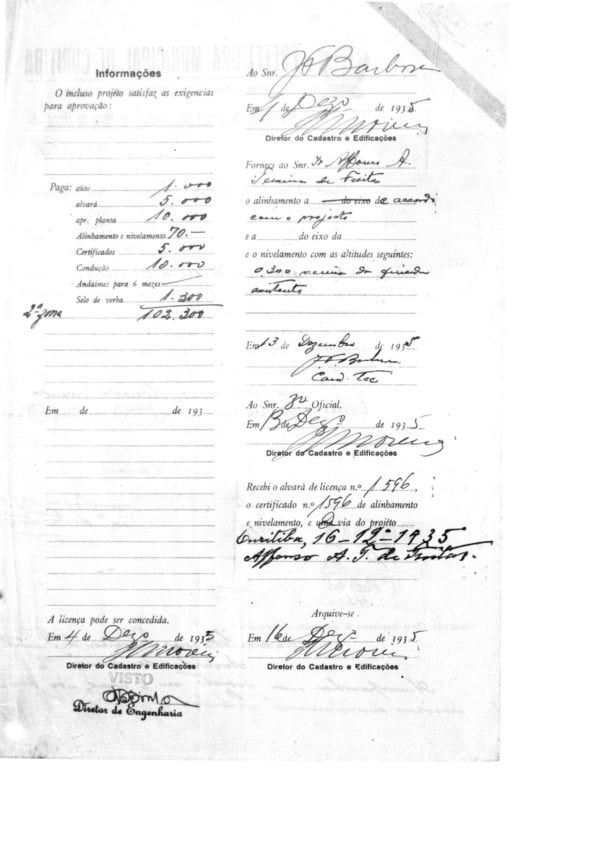 Informações
O incluso projéto satisfaz as exigencias
para aprovação:
Paga: aúto 1.000
alvará 5.000
apr. planta 10.000
Alinhamento e nivelamento 70.—
Certificados 5.000
Condução 10.000
Andaimes para 6 mezes —
Selo de verba 1.300
2ª zona 102.300
Em de de 193
A licença pode ser concedida.
Em 4 de Dezo de 1935
Diretor do Cadastro e Edificações
VISTO
Diretor de Engenharia
Ao Snr. J Barbosa
Em de Dezo de 1935
Diretor do Cadastro e Edificações
Forneç ao Snr. Affonso A.
Teixeira de Freitas
o alinhamento a do eixo de accordo
com o projecto
e a do eixo da
e o nivelamento com as altitudes seguintes:
0,300 acima da guia
existente
Em 13 de Dezembro de 1935
Ao Snr. Oficial.
Em 13 de Dezo de 1935
Diretor do Cadastro e Edificações
Recebi o alvará de licença n.º 1596,
o certificado n.º 1596 de alinhamento
e nivelamento, e via do projéto
Curitiba, 16-12-1935
Affonso A. T. de Freitas.
Arquive-se
Em 16 de Dezo de 1935
Diretor do Cadastro e Edificações